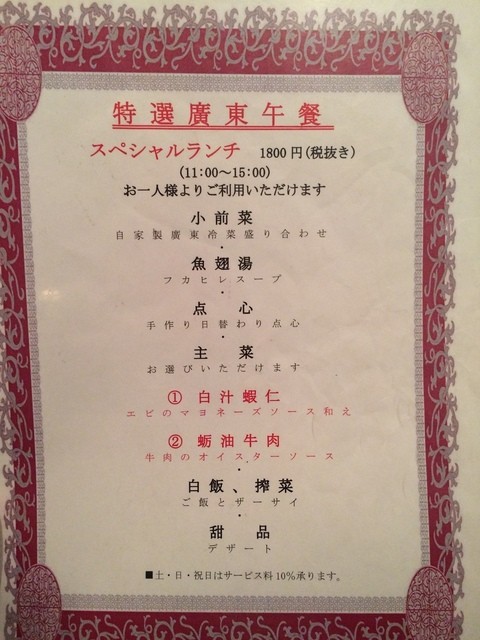 特選廣東午餐
スペシャルランチ 1800円(税抜き)
(11:00～15:00)
お一人様よりご利用いただけます
小前菜
自家製廣東冷菜盛り合わせ
・
魚翅湯
フカヒレスープ
・
点心
手作り日替わり点心
・
主菜
お選びいただけます
① 白汁蝦仁
エビのマヨネーズソース和え
② 蛎油牛肉
牛肉のオイスターソース
・
白飯、搾菜
ご飯とザーサイ
・
甜品
デザート
■土・日・祝日はサービス料10%承ります。